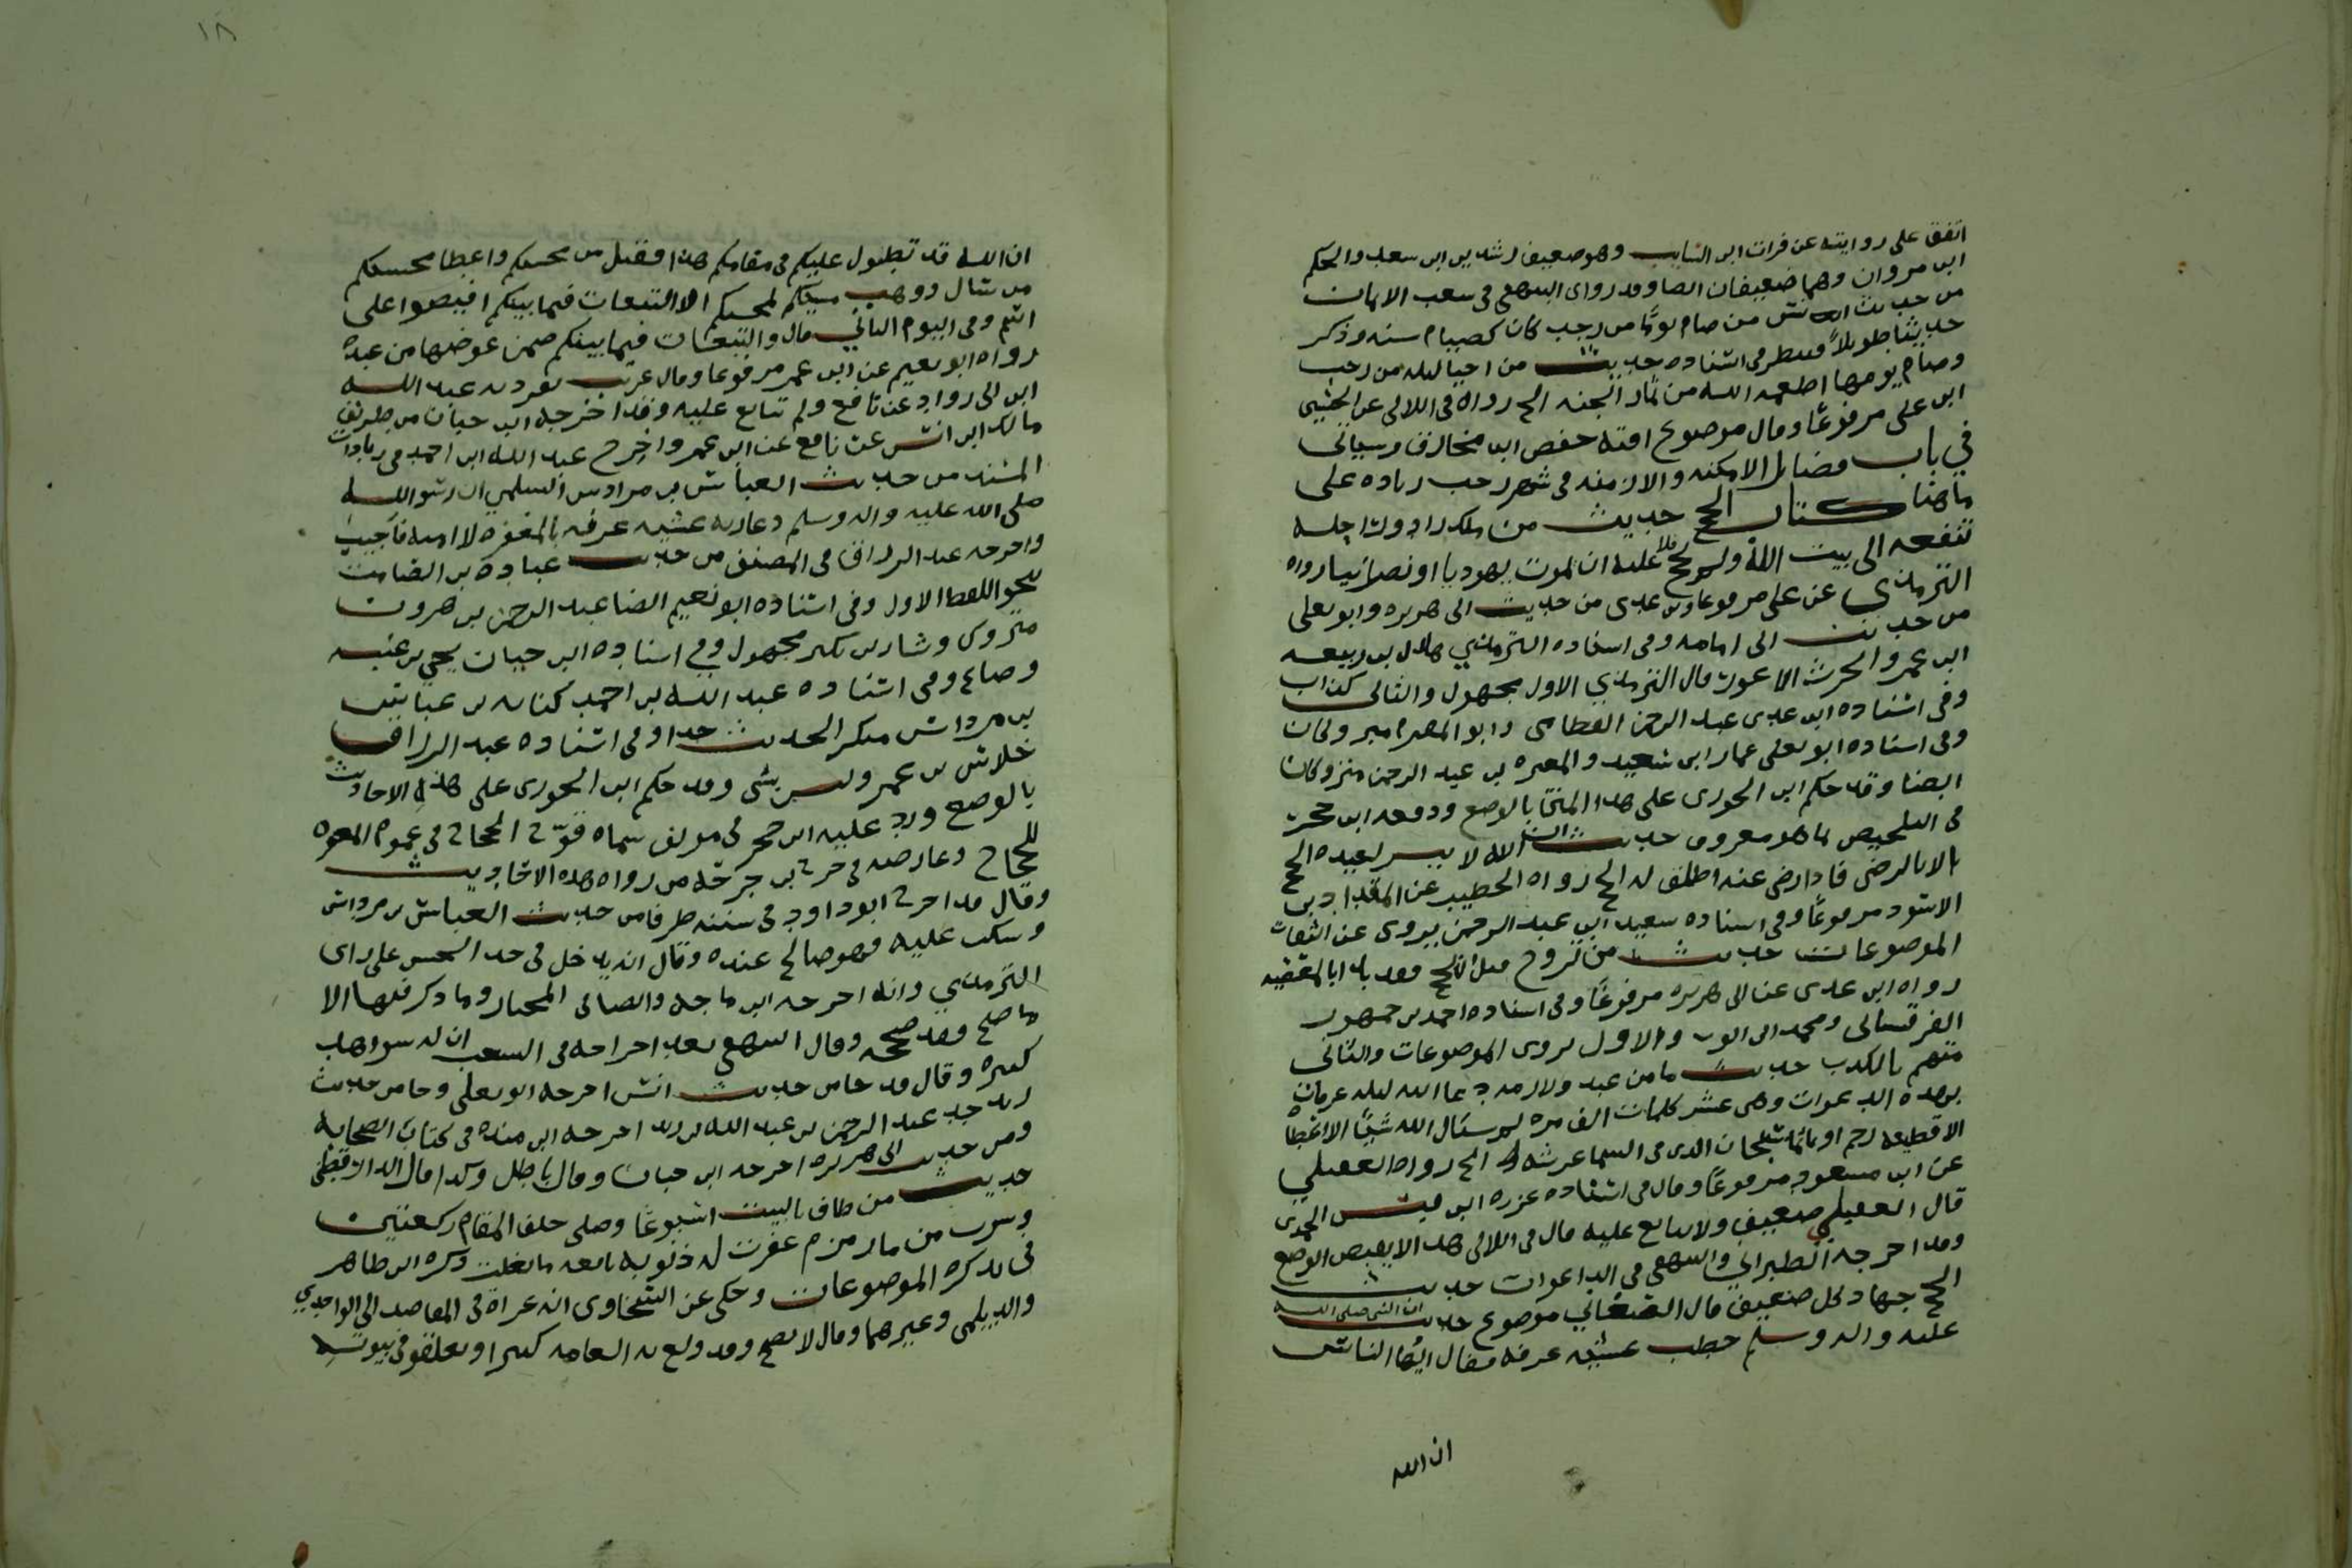 اتفق على روايته عن فرات ابن السايب وهو ضعيف رشدين ابن سعد والحكم
ابن مروان وهما ضعيفان ايضا وقد روى البيهقي في شعب الايمان
من حديث انس من صام يوما من رجب كان كصيام سنه وذكر
حديثا طويلاً فينظر في اسناده حديث من احيا ليله من رجب
وصام يومها اطعمه الله من ثمار الجنه الخ رواه في اللالي عن الحسين
ابن علي مرفوعًا وقال موضوع افته حفص ابن مخارق وسياتي
في باب فضائل الامكنه والازمنه في شهر رجب زياده على
ما هنا كتاب الحج حديث من ملك زادا وراحله
تبلغه الى بيت الله ولم يحج فلا عليه ان يموت يهوديا او نصرانيا رواه
الترمذي عن علي مرفوعا وابن عدي من حديث ابي هريره وابو يعلى
من حديث ابي امامه وفي اسناده الترمذي هلال بن ربيعه
ابن عمرو الحرث الاعور قال الترمذي الاول مجهول والثاني كذاب
وفي اسناده ابن عدي عبد الرحمن القطامي وابو المهزم متروكان
وفي اسناده ابو يعلى عمار ابن سعيد والمغيره بن عبد الرحمن متروكان
ايضا وقد حكم ابن الجوزي على هذا المتن بالوضع ودفعه ابن حجر
في التلخيص بما هو معروف حديث ان الله لا ييسر لعبده الحج
الا بالرضى فاذا رضي عنه اطلق له الحج رواه الخطيب عن المقداد بن
الاسود مرفوعًا وفي اسناده سعيد ابن عبد الرحمن يروي عن الثقات
الموضوعات حديث من تزوج قبل ان يحج فقد بدا بالمعصيه
رواه ابن عدي عن ابي هريره مرفوعًا وفي اسناده احمد بن جمهور
القرقساني ومحمد ابن ايوب والاول يروي الموضوعات والثاني
متهم بالكذب حديث ما من عبد ولا امه دعا الله ليله عرفات
بهذه الدعوات وهي عشر كلمات الف مره لم يسئال الله شيئًا الا اعطاه
الا قطيعه رحم او ماثما سبحان الذي في السما عرشه الخ رواه العقيلي
عن ابن مسعود مرفوعًا وقال في اسناده عزره ابن قيس اليحمدي
قال العقيلي ضعيف ولا يتابع عليه قال في اللالي هذا لا يقتضي الوضع
وقد اخرجه الطبراني والبيهقي في الدعوات حديث
الحج جهاد كل ضعيف قال الصغاني موضوع حديث ان النبي صلى الله
عليه واله وسلم خطب عشيه عرفه فقال ايها الناس
ان الله
١٨
ان الله قد تطول عليكم في مقامكم هذا فقبل من محسنكم واعطا محسنكم
ما سال ووهب مسيئكم لمحسنكم الا التبعات فيما بينكم افيضوا على
اسم وفي اليوم الثاني قال والتبعات فيما بينكم ضمن عوضها من عنده
رواه ابو نعيم عن ابن عمر مرفوعا وقال غريب تفرد به عبد الله
ابن ابي رواد عن نافع ولم يتابع عليه وقد اخرجه ابن حبان من طريق
مالك ابن انس عن نافع عن ابن عمر واخرج عبد الله ابن احمد في زيادات
المسند من حديث العباس بن مرداس السلمي ان رسول الله
صلى الله عليه واله وسلم دعا ربه عشيه عرفه بالمغفره لامته فاجيب
واخرجه عبد الرزاق في المصنف من حديث عباده بن الصامت
نحو اللفظ الاول وفي اسناده ابو نعيم ايضا عبد الرحمن بن هرون
متروك وشار بن بكير مجهول وفي اسناده ابن حبان يحيى بن عنبسه
وضاع وفي اسناده عبد الله بن احمد كنانه بن عباس
بن مرداس منكر الحديث جدا وفي اسناده عبد الرزاق
خلاس بن عمرو ليس بشي وقد حكم ابن الجوزي على هذه الاحاديث
بالوضع ورد عليه ابن حجر في مولف سماه قوة الحجاج في عموم المغفره
للحجاج وعارضه في جزء من رواه هذه الاحاديث
وقال قد اخرج ابو داود في سننه طرفا من حديث العباس بن مرداس
وسكت عليه فهو صالح عنده وقال انه يدخل في حد الحسن على راي
الترمذي وانه اخرجه ابن ماجه والضيا في المختاره وما ذكر فيها الا
ما صلح وقد صححه وقال البيهقي بعد اخراجه في الشعب ان له شواهد
كثيره وقال قد جا من حديث انس اخرجه ابو يعلى وجا من حديث
زيد جد عبد الرحمن بن عبد الله بن زيد اخرجه ابن منده في كتاب الصحابه
ومن حديث ابي هريره اخرجه ابن حبان وقال باطل وكذا قال الدارقطني
حديث من طاف بالبيت اسبوعًا وصلى خلف المقام ركعتين
وشرب من ما زمزم غفرت له ذنوبه بالغه ما بلغت ذكره ابن طاهر
في تذكره الموضوعات وحكى عن السخاوي انه عزاه في المقاصد الى الواحدي
والديلمي وغيرهما وقال لا يصح وقد ولع به العامه كثيرا وتعلقو في ثبوته